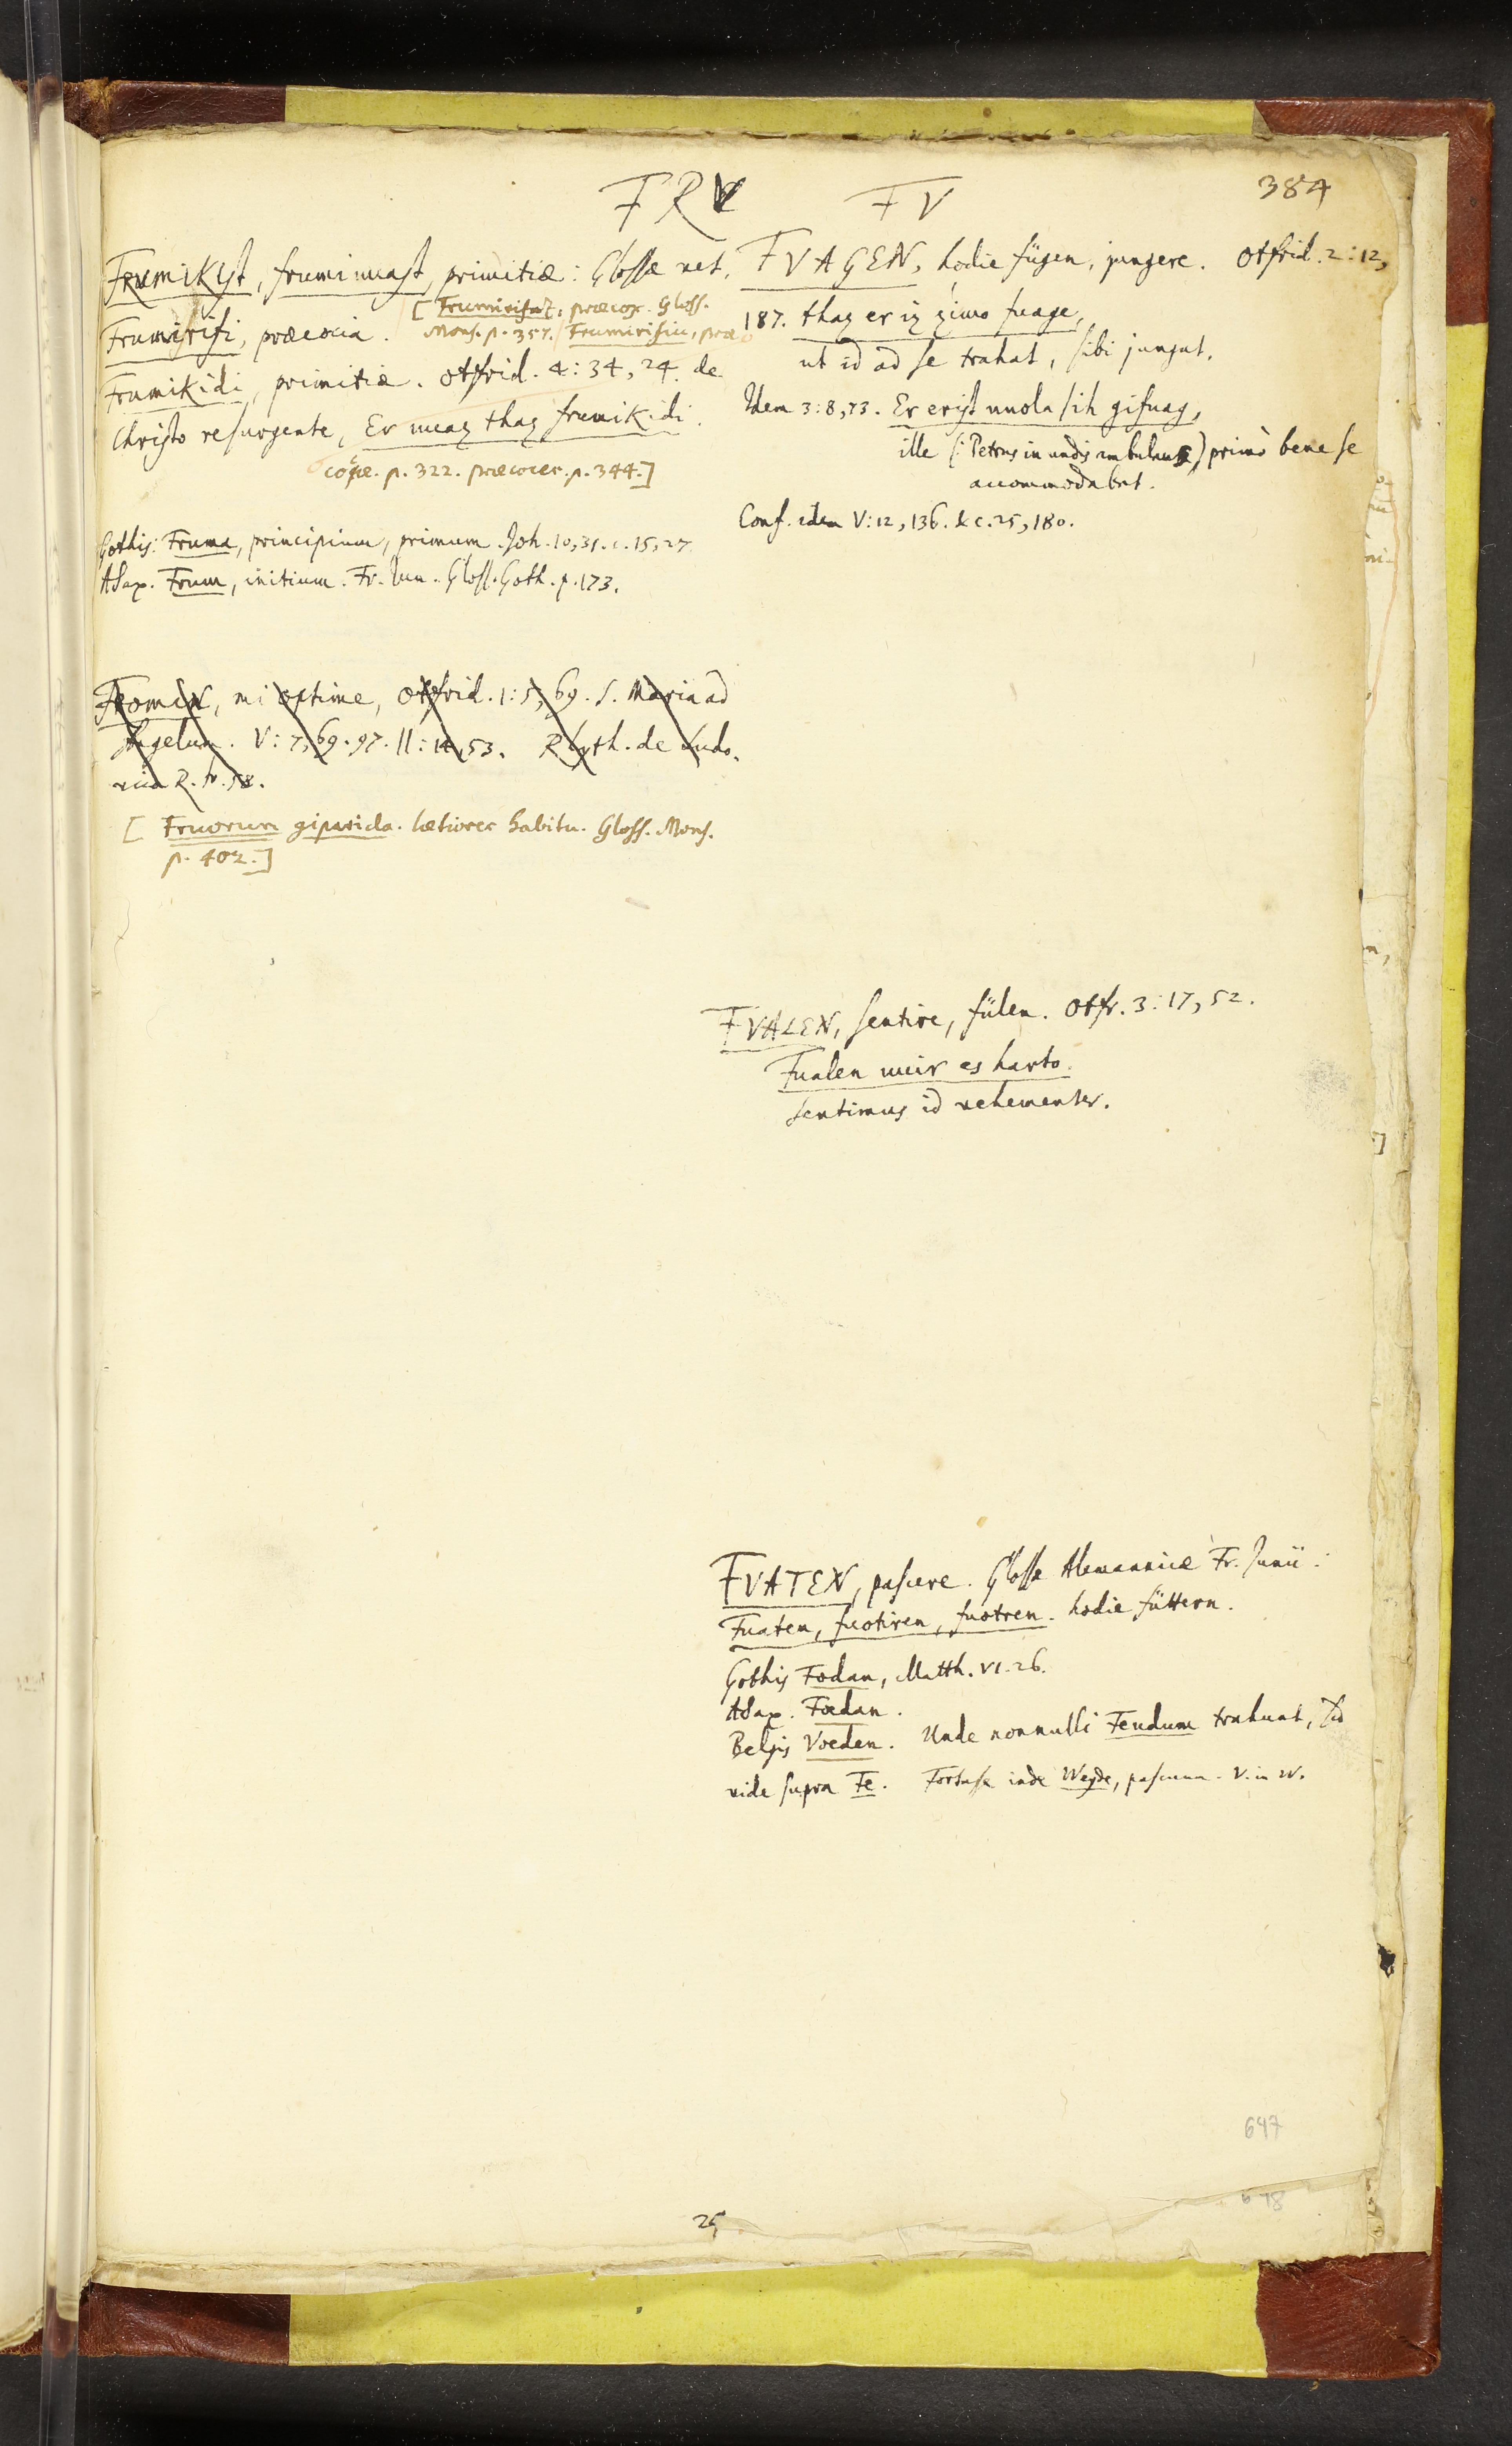 FRV
FV
384
FRumiKyst, frumiwast, primitiæ: Glossæ vet.
[Frumirifaz, præcox. Gloss.
Mons. p. 357. Frumirifiu, præ
Frumirifi, præcocia.
FrumiKidi, primitiæ. Otfrid. 4:34, 24. de
Christo resurgente, Er wuaz thaz frumiKidi.
coqæ. p. 322. præcoces. p. 344.]
Gothis: Fruma, principium, primum. Joh. 10,31. c. 15,27
ASax. Frum, initium. Fr. Jun. Gloss. Goth. p. 173.
FROMIN, mi optime, Otfrid. 1:5, 69. S. Maria ad
Angelum. V: 7,69. 97. II: 14,53. Rhyth. de Ludo-
vico R. fr. 58.
[Fruorum giparida. lætiores habitu. Gloss. Mons.
p. 402.]
FVAGEN, hodie fügen, jungere. Otfrid. 2:12,
187. thaz er iz zimo fuage,
ut id ad se trahat, sibi jungat.
Idem 3:8,73. Er erist uuola sih gifuag,
ille (: Petrus in undis ambulans) primò bene se
accommodabat.
Conf. idem V:12,136. & c. 25,180.
FVALEN, sentire, fülen. Otfr. 3:17,52.
Fualen wir es harto.
sentimus id vehementer.
FVATEN, pascere. Glossæ Alemannicæ Fr. Junii:
Fuaten, fuotiren, fuotren. hodie füttern.
Gothis Fodan, Matth. VI. 26.
ASax. Foedan.
Belgis Voeden. Unde nonnulli Feudum trahunt, sed
vide supra Fe. Fortasse inde Weyde, pascuum. V. in W.
647
648
25